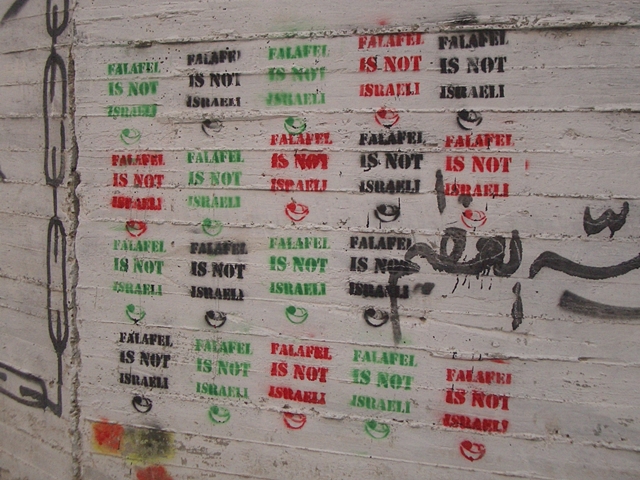 FALAFEL
IS NOT
ISRAELI
FALAFEL
IS NOT
ISRAELI
FALAFEL
IS NOT
ISRAELI
FALAFEL
IS NOT
ISRAELI
FALAFEL
IS NOT
ISRAELI
FALAFEL
IS NOT
ISRAELI
FALAFEL
IS NOT
ISRAELI
FALAFEL
IS NOT
ISRAELI
FALAFEL
IS NOT
ISRAELI
FALAFEL
IS NOT
ISRAELI
FALAFEL
IS NOT
ISRAELI
FALAFEL
IS NOT
ISRAELI
FALAFEL
IS NOT
ISRAELI
FALAFEL
IS NOT
ISRAELI
FALAFEL
IS NOT
ISRAELI
FALAFEL
IS NOT
ISRAELI
FALAFEL
IS NOT
ISRAELI
FALAFEL
IS NOT
ISRAELI
FALAFEL
IS NOT
ISRAELI